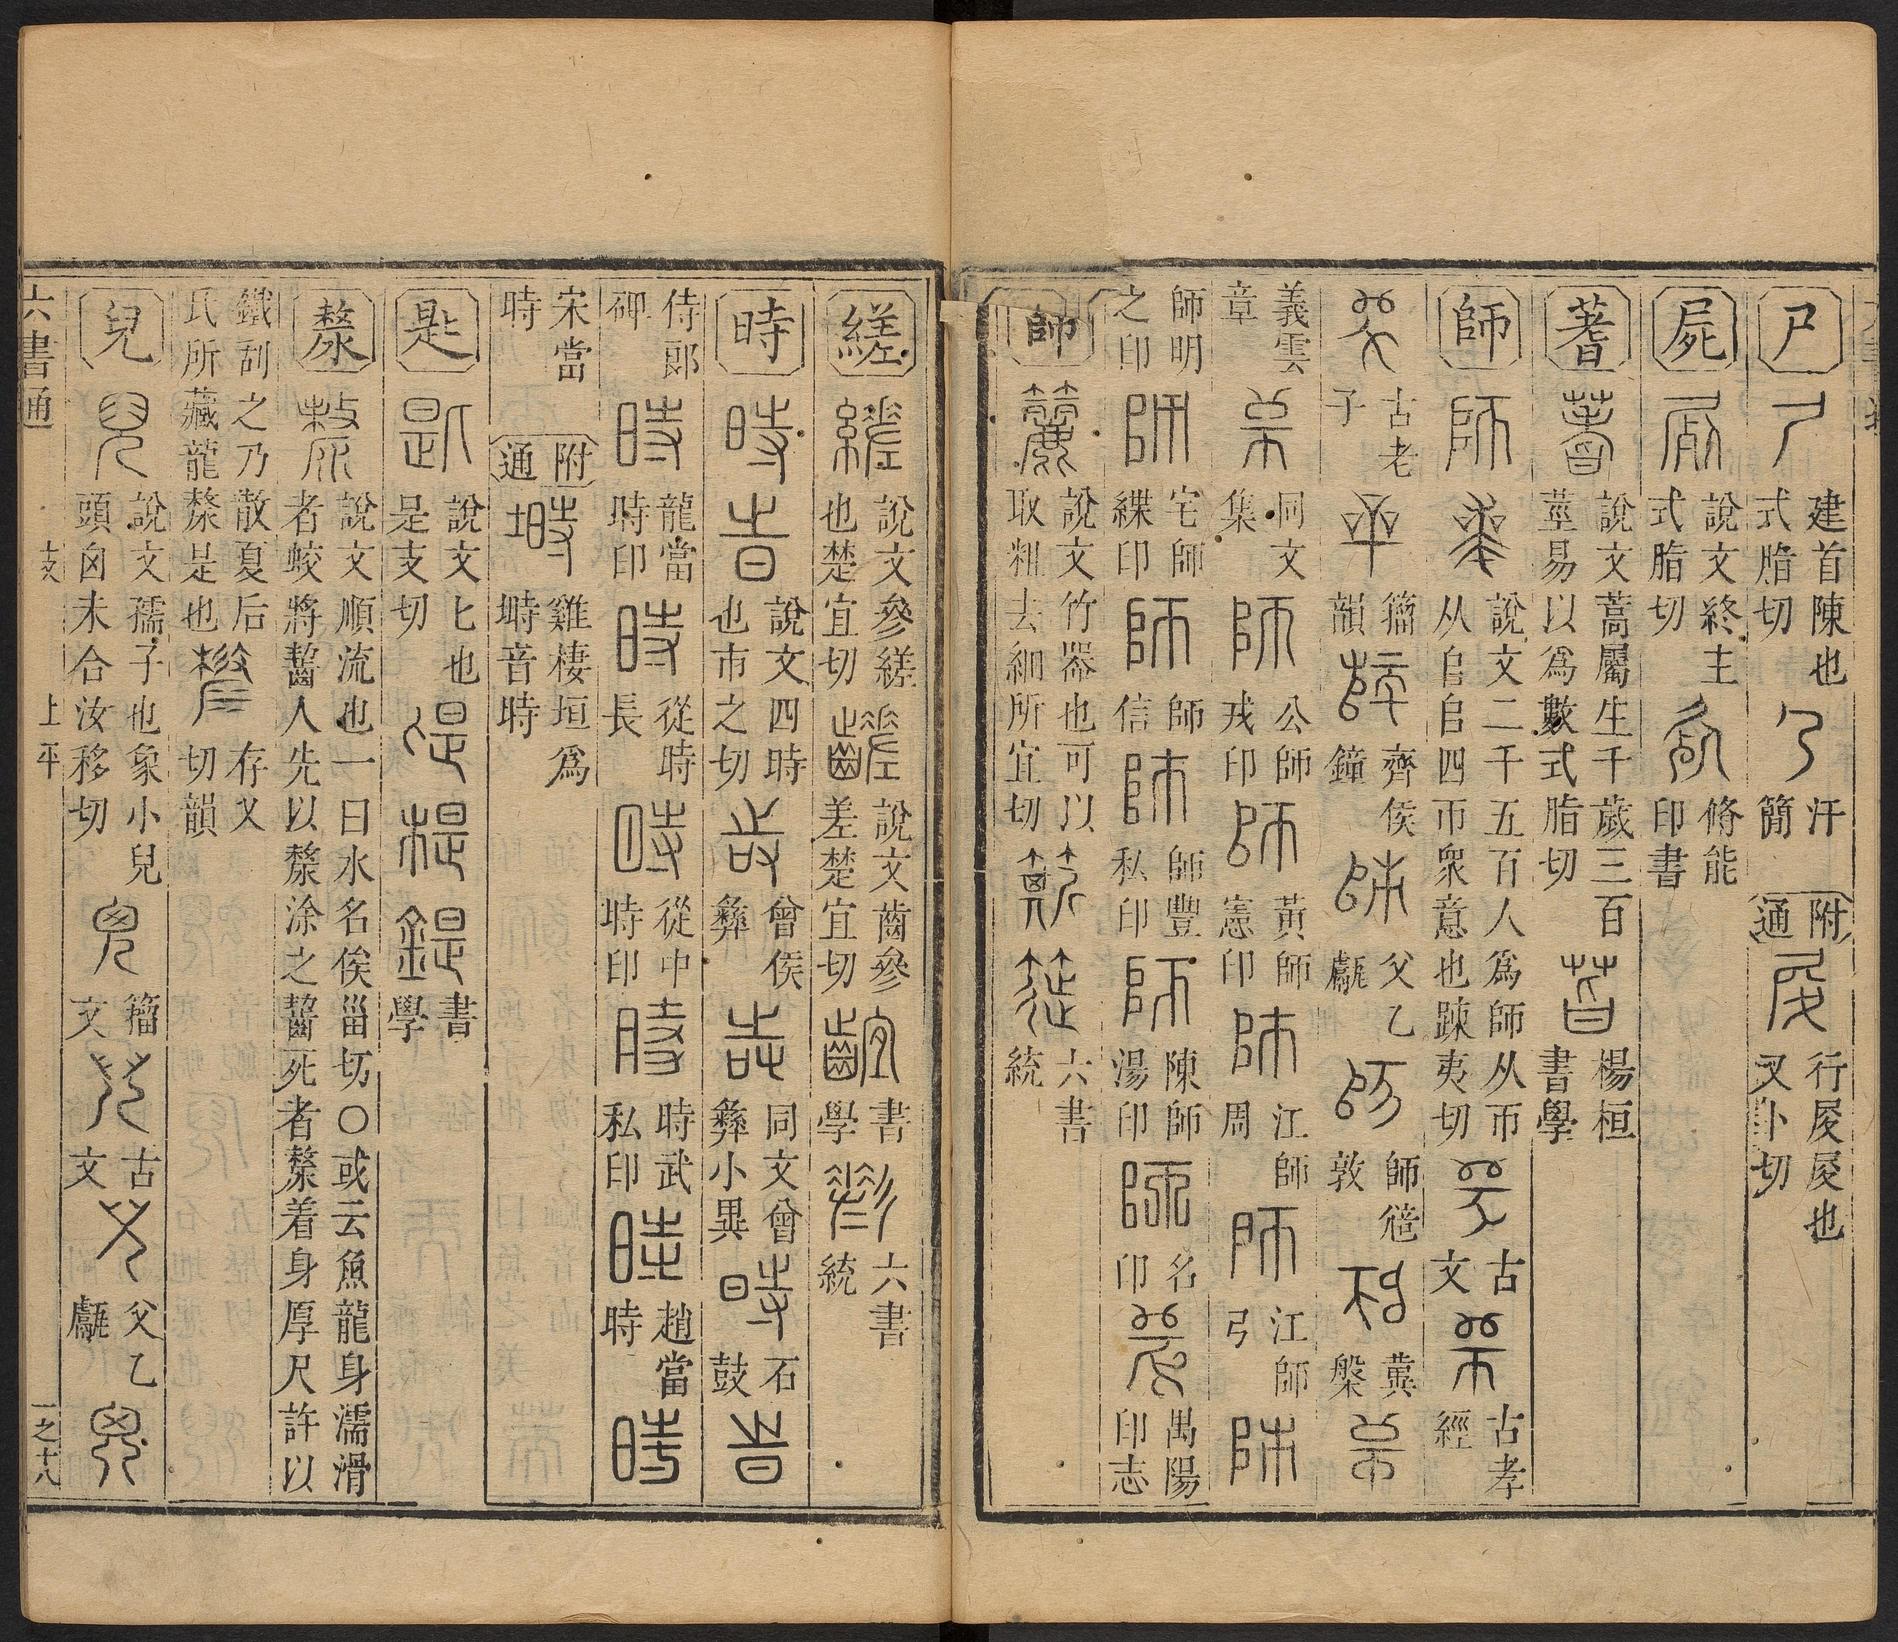 尸 建首陳也式脂切 汗簡 附通 行屐屐也叉卦切
屍 說文終主式脂切 脩能印書
蓍 說文蒿屬生千歲三百莖易以為數式脂切 楊桓書學
師 說文二千五百人為師从帀从𠂤𠂤四帀眾意也踈夷切 古文 古孝經
古老子 籀韻 齊侯鐘 父乙甗 師𮥼敦 冀槃
義雲章 同文集 公師戎印 黃師憲印 江師周 江師弓
師明之印 宅師緤印 師信 師豐私印 陳師湯印 名印 禺陽印志
說文竹器也可以取粗去細所宜切 六書統
縒 說文參縒也楚宜切 說文齒參差楚宜切 書學 六書統
時 說文四時也市之切 曾侯彝 同文曾彝小異 石鼓
侍郎碑 龍當時印 從時長 從中時印 時武私印 趙當時
宋當時 附通 雞棲垣為塒音時
匙 說文匕也是支切 書學
漦 說文順流也一曰水名俟甾切〇或云魚龍身濡滑者蛟將䶜人先以漦涂之䶜死者漦着身厚尺許以
鐵刮之乃散夏后氏所藏龍漦是也 存乂切韻
兒 說文孺子也象小兒頭囟未合汝移切 籀文 古文 父乙甗
六書通 支 上平 一之十八